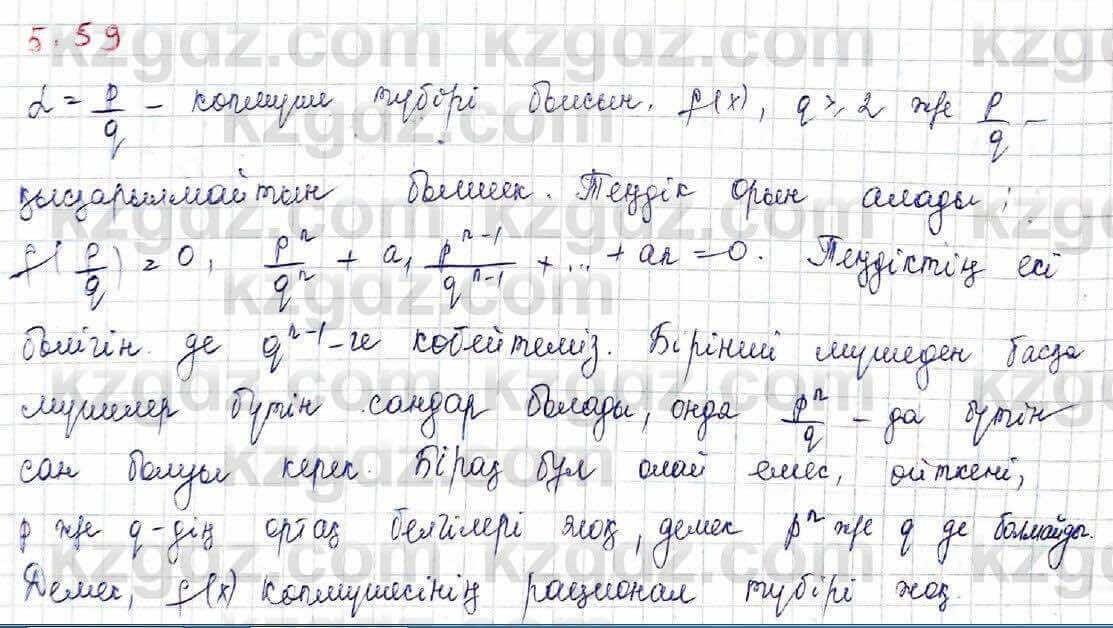 5.59
α = p/q - көпмүше түбірі болсын. f(x), q ≥ 2 және p/q -
қысқарылмайтын бөлшек. Теңдік орын алады:
f(p/q) = 0, p^n/q^n + a₁ p^(n-1)/q^(n-1) + ... + aₙ = 0. Теңдіктің екі
бөлігін де q^(n-1)-ге көбейтеміз. Бірінші мүшеден басқа
мүшелер бүтін сандар болады, онда p^n/q - да бүтін
сан болуы керек. Бірақ бұл олай емес, өйткені,
p және q-дің ортақ белгілері жоқ, демек p^n және q де болмайды.
Демек, f(x) көпмүшесінің рационал түбірі жоқ.
kzgdz.com